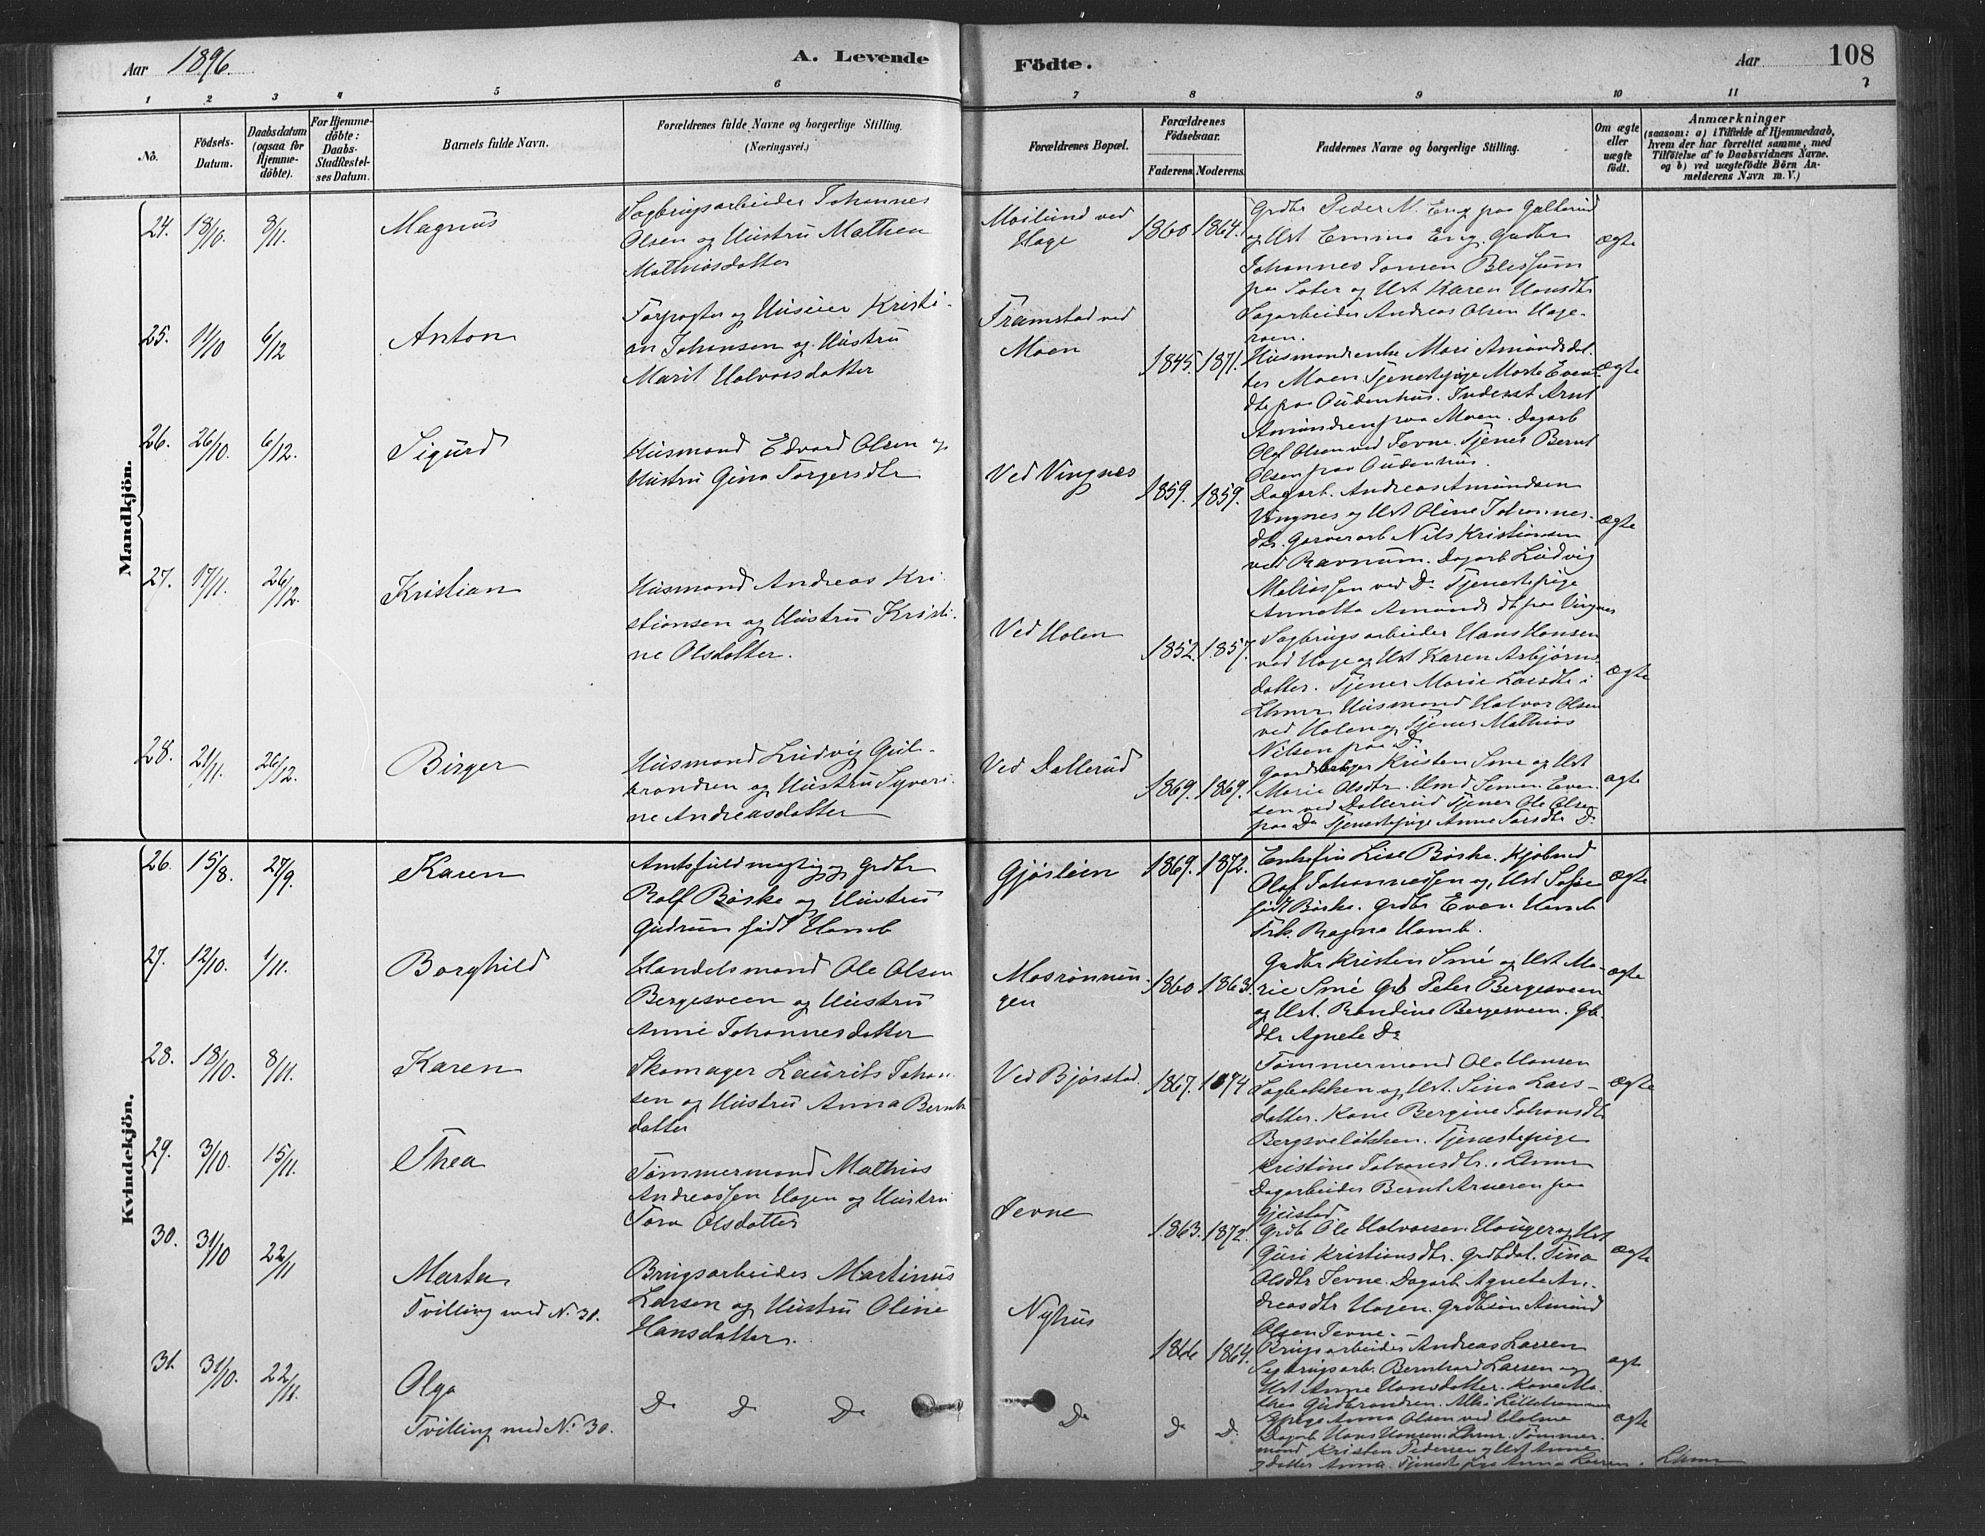 Aar 1896. A. Levende Födte. Aar 108
1 2 3 4 5 6 7 8 9 10 11
No.
Födsels-Datum.
Daabsdatum (ogsaa for Hjemmedöbte).
For Hjemmedöbte: Daabs-Stadfestelses Datum.
Barnets fulde Navn.
Forældrenes fulde Navne og borgerlige Stilling. (Næringsvei.)
Forældrenes Bopæl.
Forældrenes Födselsaar.
Faderens Moderens
Faddernes Navne og borgerlige Stilling.
Om ægte eller uægte födt.
Anmærkninger
(saasom: a) i Tilfælde af Hjemmedaab,
hvem der har forrettet samme, med
Tilföielse af to Daabsvidners Navne.
og b) ved uægtefödte Börn An-
melderens Navn m. V.)
Mandkjön.
24. 18/10 8/11. Magnus
Sagbrugsarbeider Johannes
Olsen og Hustru Mathea
Mathiasdatter
Moilund ved
Hage
1860 1864.
Grdbr Peder M. Eng paa Galterud
og Hst Emma Eng. Grdbr
Johannes Tomsen Blessum
paa Soter og Hst Karen Hansdtr
Sagarbeider Andreas Olsen Hage-
roen.
ægte
25. 14/10 6/12 Anton
Forpagter og Huseier Kristi-
an Johansen og Hustru
Marit Halvorsdatter
Framstad ved
Moen
1845. 1871.
Husmandsenke Mari Amundsdat-
ter Moen Tjenestepige Marte Even-
dtr paa Oudenhus. Inderst Arnt
Amundsen paa Moen. Dagarb
Olaf Olsen ved Jevne. Tjener Bernt
Olsen paa Oudenhus.
ægte
26. 26/10. 6/12. Sigurd
Husmand Edvard Olsen og
Hustru Gina Torgersdtr
Ved Vingnes
1859. 1859.
Dagarb. Andreas Amundsen
Vingnes og Hst Oline Johannes-
dtr. Garverarb Nils Kristiansen
ved Ravnum. Dagarb Ludvig
Matiassen ved Do Tjenestepige
Annette Amundsdt paa Vingnes
ægte
27. 17/11. 26/12. Kristian
Husmand Andreas Kri-
stiansen og Hustru Kristi-
ne Olsdatter.
Ved Holen
1852. 1857.
Sagbrugsarbeider Hans Hansen
ved Hage og Hst Karen Asbjørns-
datter. Tjener Marie Larsdtr i
Lhmr. Husmand Halvor Olsen
ved Holen og Tjener Mathias
Nilsen paa Do
ægte
28. 21/11. 26/12. Birger
Husmand Ludvig Gul-
brandsen og Hustru Syveri-
ne Andreasdatter
Ved Dallerud
1869. 1869.
Gaardbruger Kristen Sme og Hst
Marie Olsdtr. Hmd Simen Even-
sen ved Dallerud Tjener Ole Olsen
paa Do Tjenestepige Anne Larsdtr Do
ægte
Kvindekjön.
26. 15/8. 27/9. Karen
Amtsfuldmægtig og Grdbr
Rolf Börke og Hustru
Gudrun født Hamb
Gjøslein
1869. 1872.
Enkefru Lise Börke. Kjøbmd
Olaf Johannessen og Hst Sofie
født Börke. Grdbr Even Hamb
Frk. Ragna Hamb.
ægte
27. 12/10. 1/11. Borghild
Handelsmand Ole Olsen
Bergesveen og Hustru
Anne Johannesdatter
Mosrønnin-
gen
1860 1863.
Grdbr Kristen Smé og Hst Ma-
rie Smé Grb Peter Bergesveen
og Hst. Randine Bergesveen. Gb.
dtr Agnete Do
ægte
28. 18/10. 8/11. Karen
Skomager Laurits Johan-
sen og Hustru Anna Bernts
datter
Ved Bjørstad.
1867. 1874
Tømmermand Ole Hansen
Sagbakken og Hst. Sina Lars-
datter. Kone Bergine Johansdtr
Bergsveløkken. Tjenestepige
Kristine Johansdtr. Lhmr
Dagarbeider Bernt Arnesen paa
Gjeistad
ægte
29. 3/10. 15/11. Thea
Tømmermand Mathias
Andreassen Hagen og Hustru
Tora Olsdatter
Jevne
1863. 1872.
Grdb Ole Halvorsen Hauger og Hst
Guri Kristiansdtr. Grdbdat. Tina
Olsdtr Jevne. Dagarb Agnete An-
dreasdtr Hagen. Grdbsøn Amund
Olsen Jevne.
ægte
30. 31/10 22/11 Marta
Tvilling med No 31.
Brugsarbeider Martinus
Larsen og Hustru Oline
Hansdatter.
Nyhus
1866 1864.
Brugsarbeider Andreas Larsen
Sagbrugsarb. Bernhard Larsen og
Hst Anne Hansdatter. Kone Ma-
thea Gudbrandsen.
ægte
31. 31/10. 22/11. Olga
Tvilling med No 30.
Do Do Do Do Do Do
Tjpige Anna Olsen ved Holme
Dagarb Hans Hansen Lhmr. Tømmer-
mand Kristen Pedersen og Hst Anne
datter Anna. Tjenestepige Anna Larsen. Lhmr
ægte